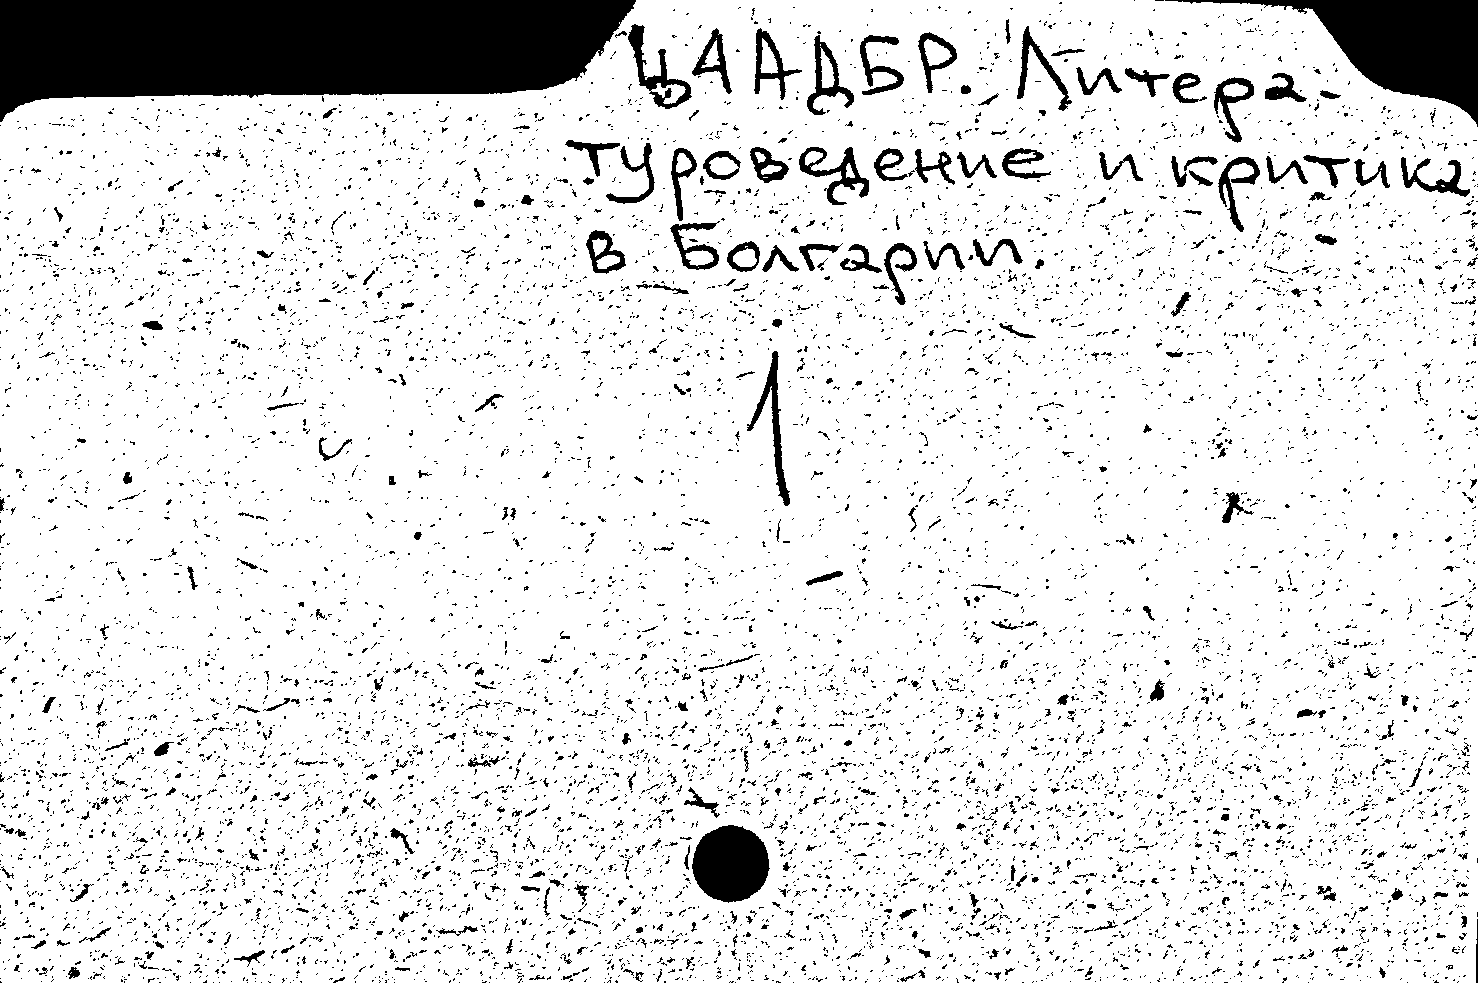 ЦААДБР. Литера-
туроведение и критика
в Болгарии.
1